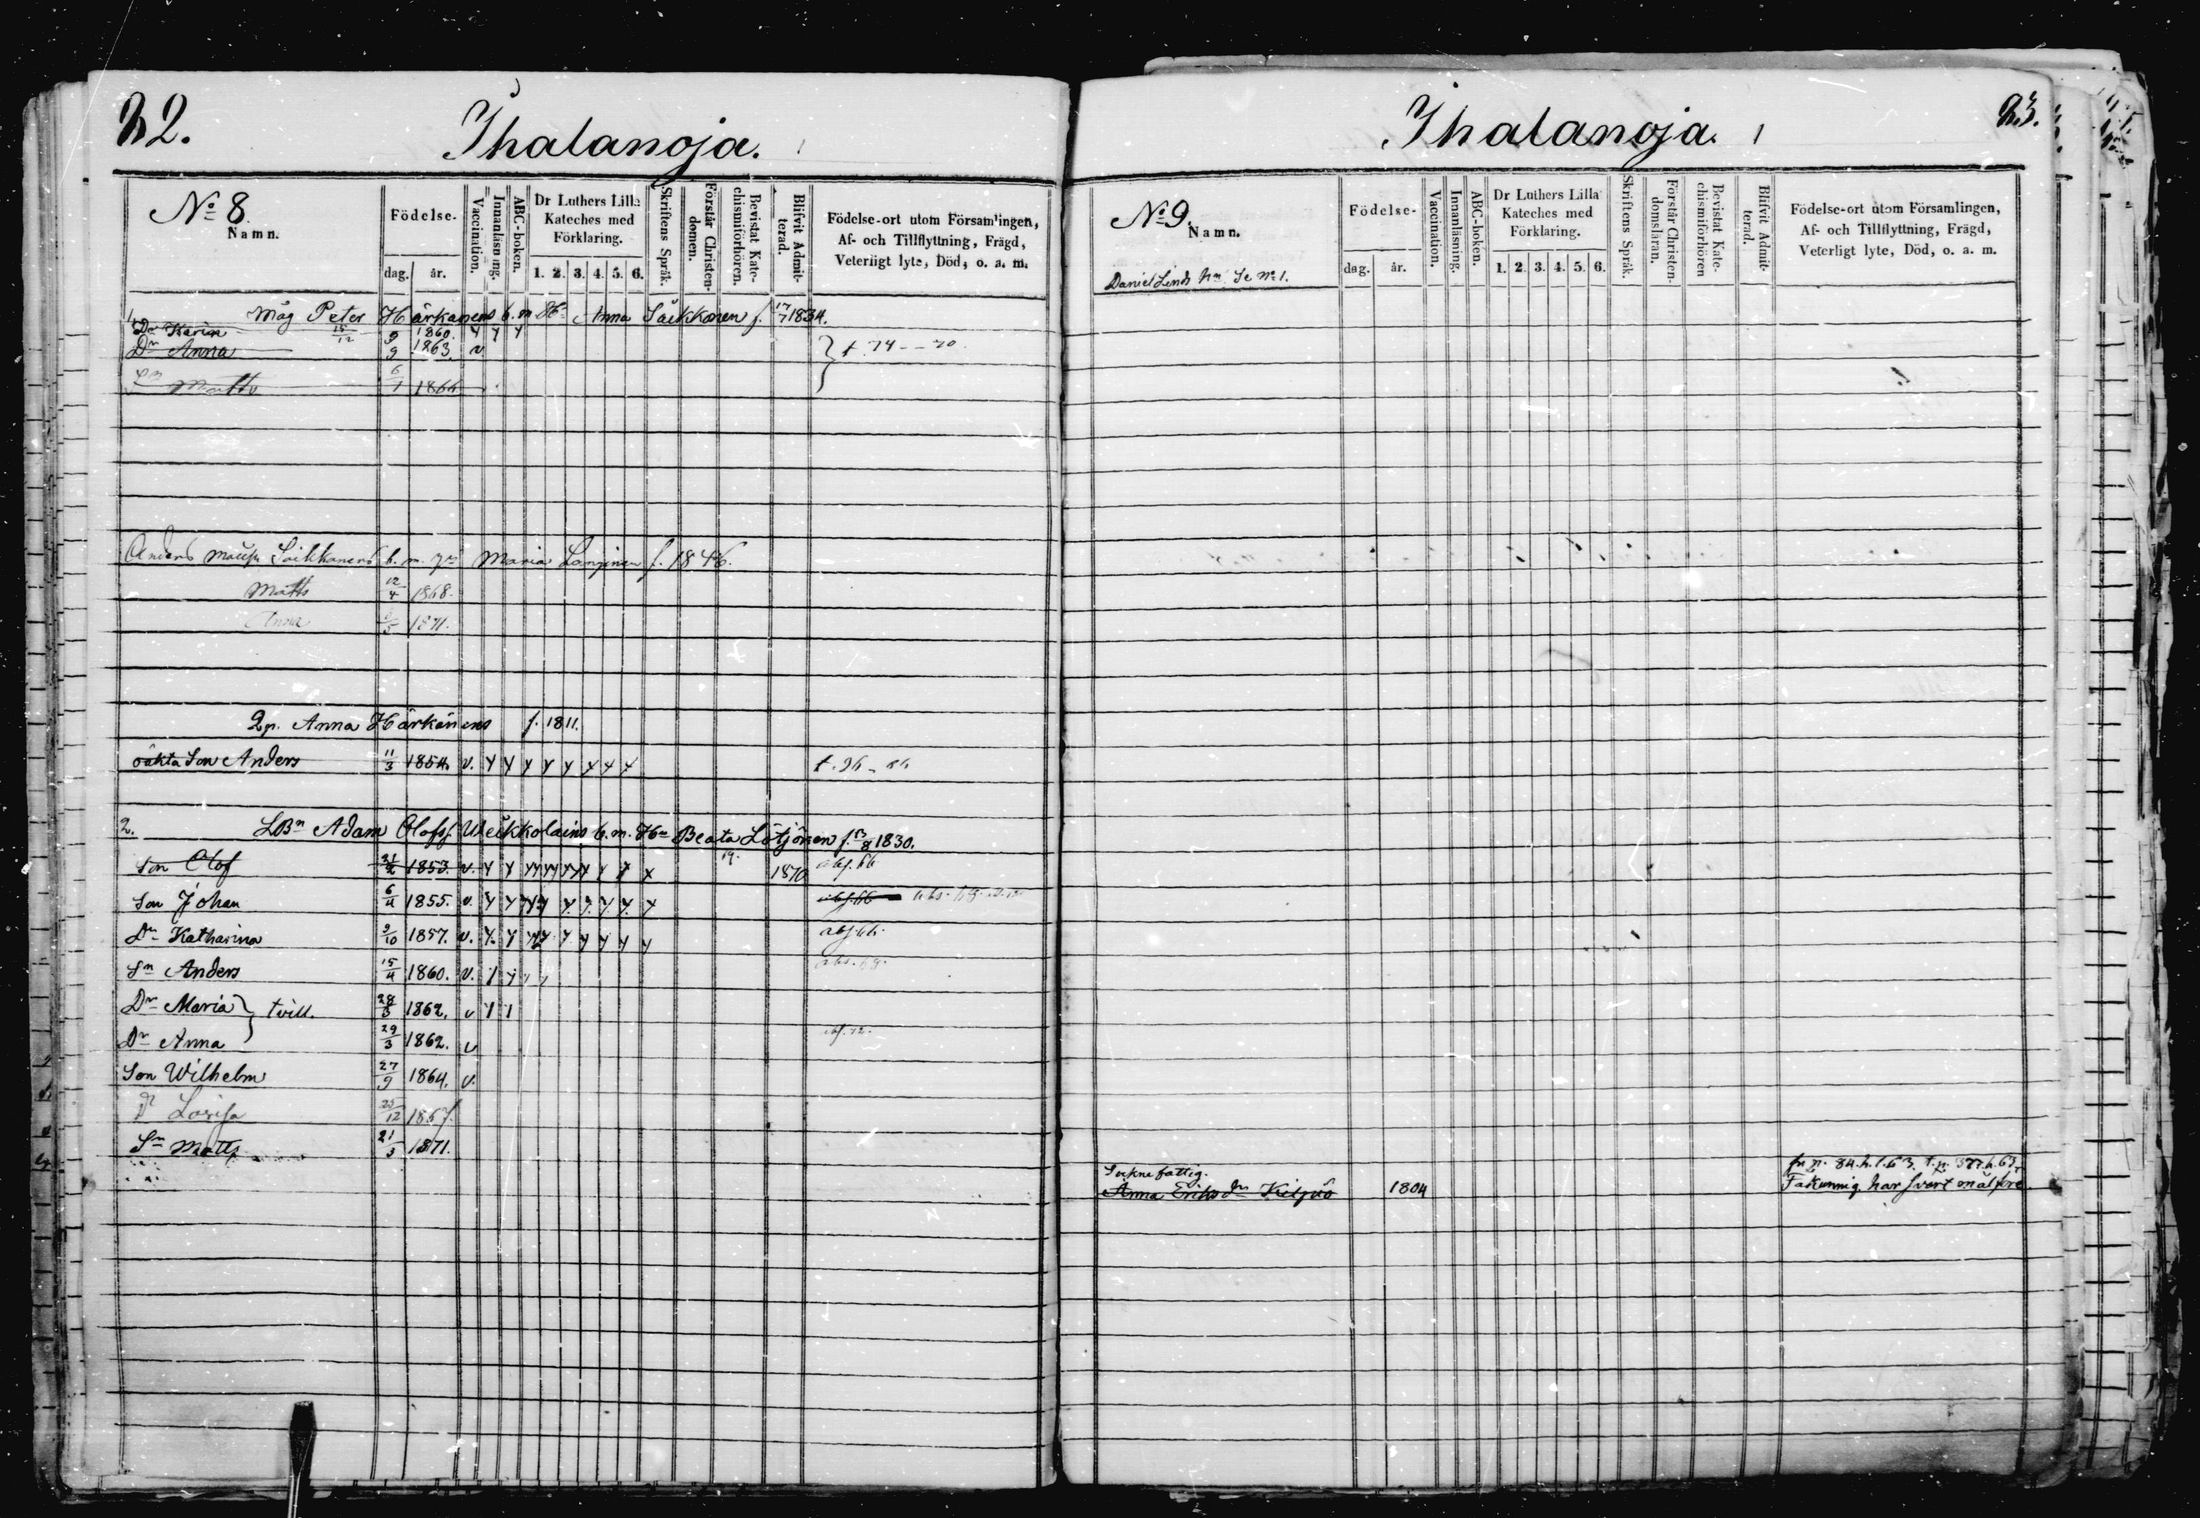 22.
Ihalanoja.
No 8.
Namn.
Födelse-
dag.
år.
Vaccination.
Innanläsning.
ABC-boken.
Dr Luthers Lilla
Kateches med
Förklaring.
1. 2. 3. 4. 5. 6.
Skriftens Språk.
Förstår Christen-
domen.
Bevistat Kate-
chismiförhören.
Blifvit Admit-
terad.
Födelse-ort utom Församlingen,
Af- och Tillflyttning, Frägd,
Veterligt lyte, Död, o. a. m.
1. Måg Peter Härkänens b. m. Hu Anna Säikkönen f. 17/7 1834.
Dr Karin 15/12 1860. y y y
Dr Anna 9/9 1863. v
Sn Matts 6/1 1866
} t. 74 - - 70
Anders Saikkanens b. m. Maria f. 1846.
Matts 12/4 1868.
Anna 1871.
Qn. Anna Härkänens f. 1811.
oäkta Son Anders 11/3 1854. v. y y y y y y y y
t. 96 - 66
2. LBn Adam Olofsf. Weikkolains b. m. Hu Beata Lötjönen f. 13/8 1830.
Son Olof 21/2 1853. v. y y yy yy yy y y y x 19. 1870 abf. 66
Son Johan 6/4 1855. v. y y y y y y y y y abf. 66
Dr Katharina 9/10 1857. v. y y yy y y y y y abf. 66
Sn Anders 15/4 1860. v. y y abs. 69.
Dr Maria } tvill. 28/3 1862. v y 1
Dr Anna 29/3 1862. v abf. 72.
Son Wilhelm 27/9 1864. v.
Dr Lovisa 25/12 1867.
Sn Matts 21/3 1871.
Ihalanoja.
23.
No 9.
Namn.
Daniel Linds hn Se No 1.
Födelse-
dag.
år.
Vaccination.
Innanläsning.
ABC-boken.
Dr Luthers Lilla
Kateches med
Förklaring.
1. 2. 3. 4. 5. 6.
Skriftens Språk.
Förstår Christen-
domsläran.
Bevistat Kate-
chismiförhören
Blifvit Admit-
terad.
Födelse-ort utom Församlingen,
Af- och Tillflyttning, Frägd,
Veterligt lyte, Död, o. a. m.
Sockne fattig.
Anna Eriks dr 1804
fr p. 84. h. 1. 63. t. p. 377. h. 63.
Fåkunnig. har svårt målföre